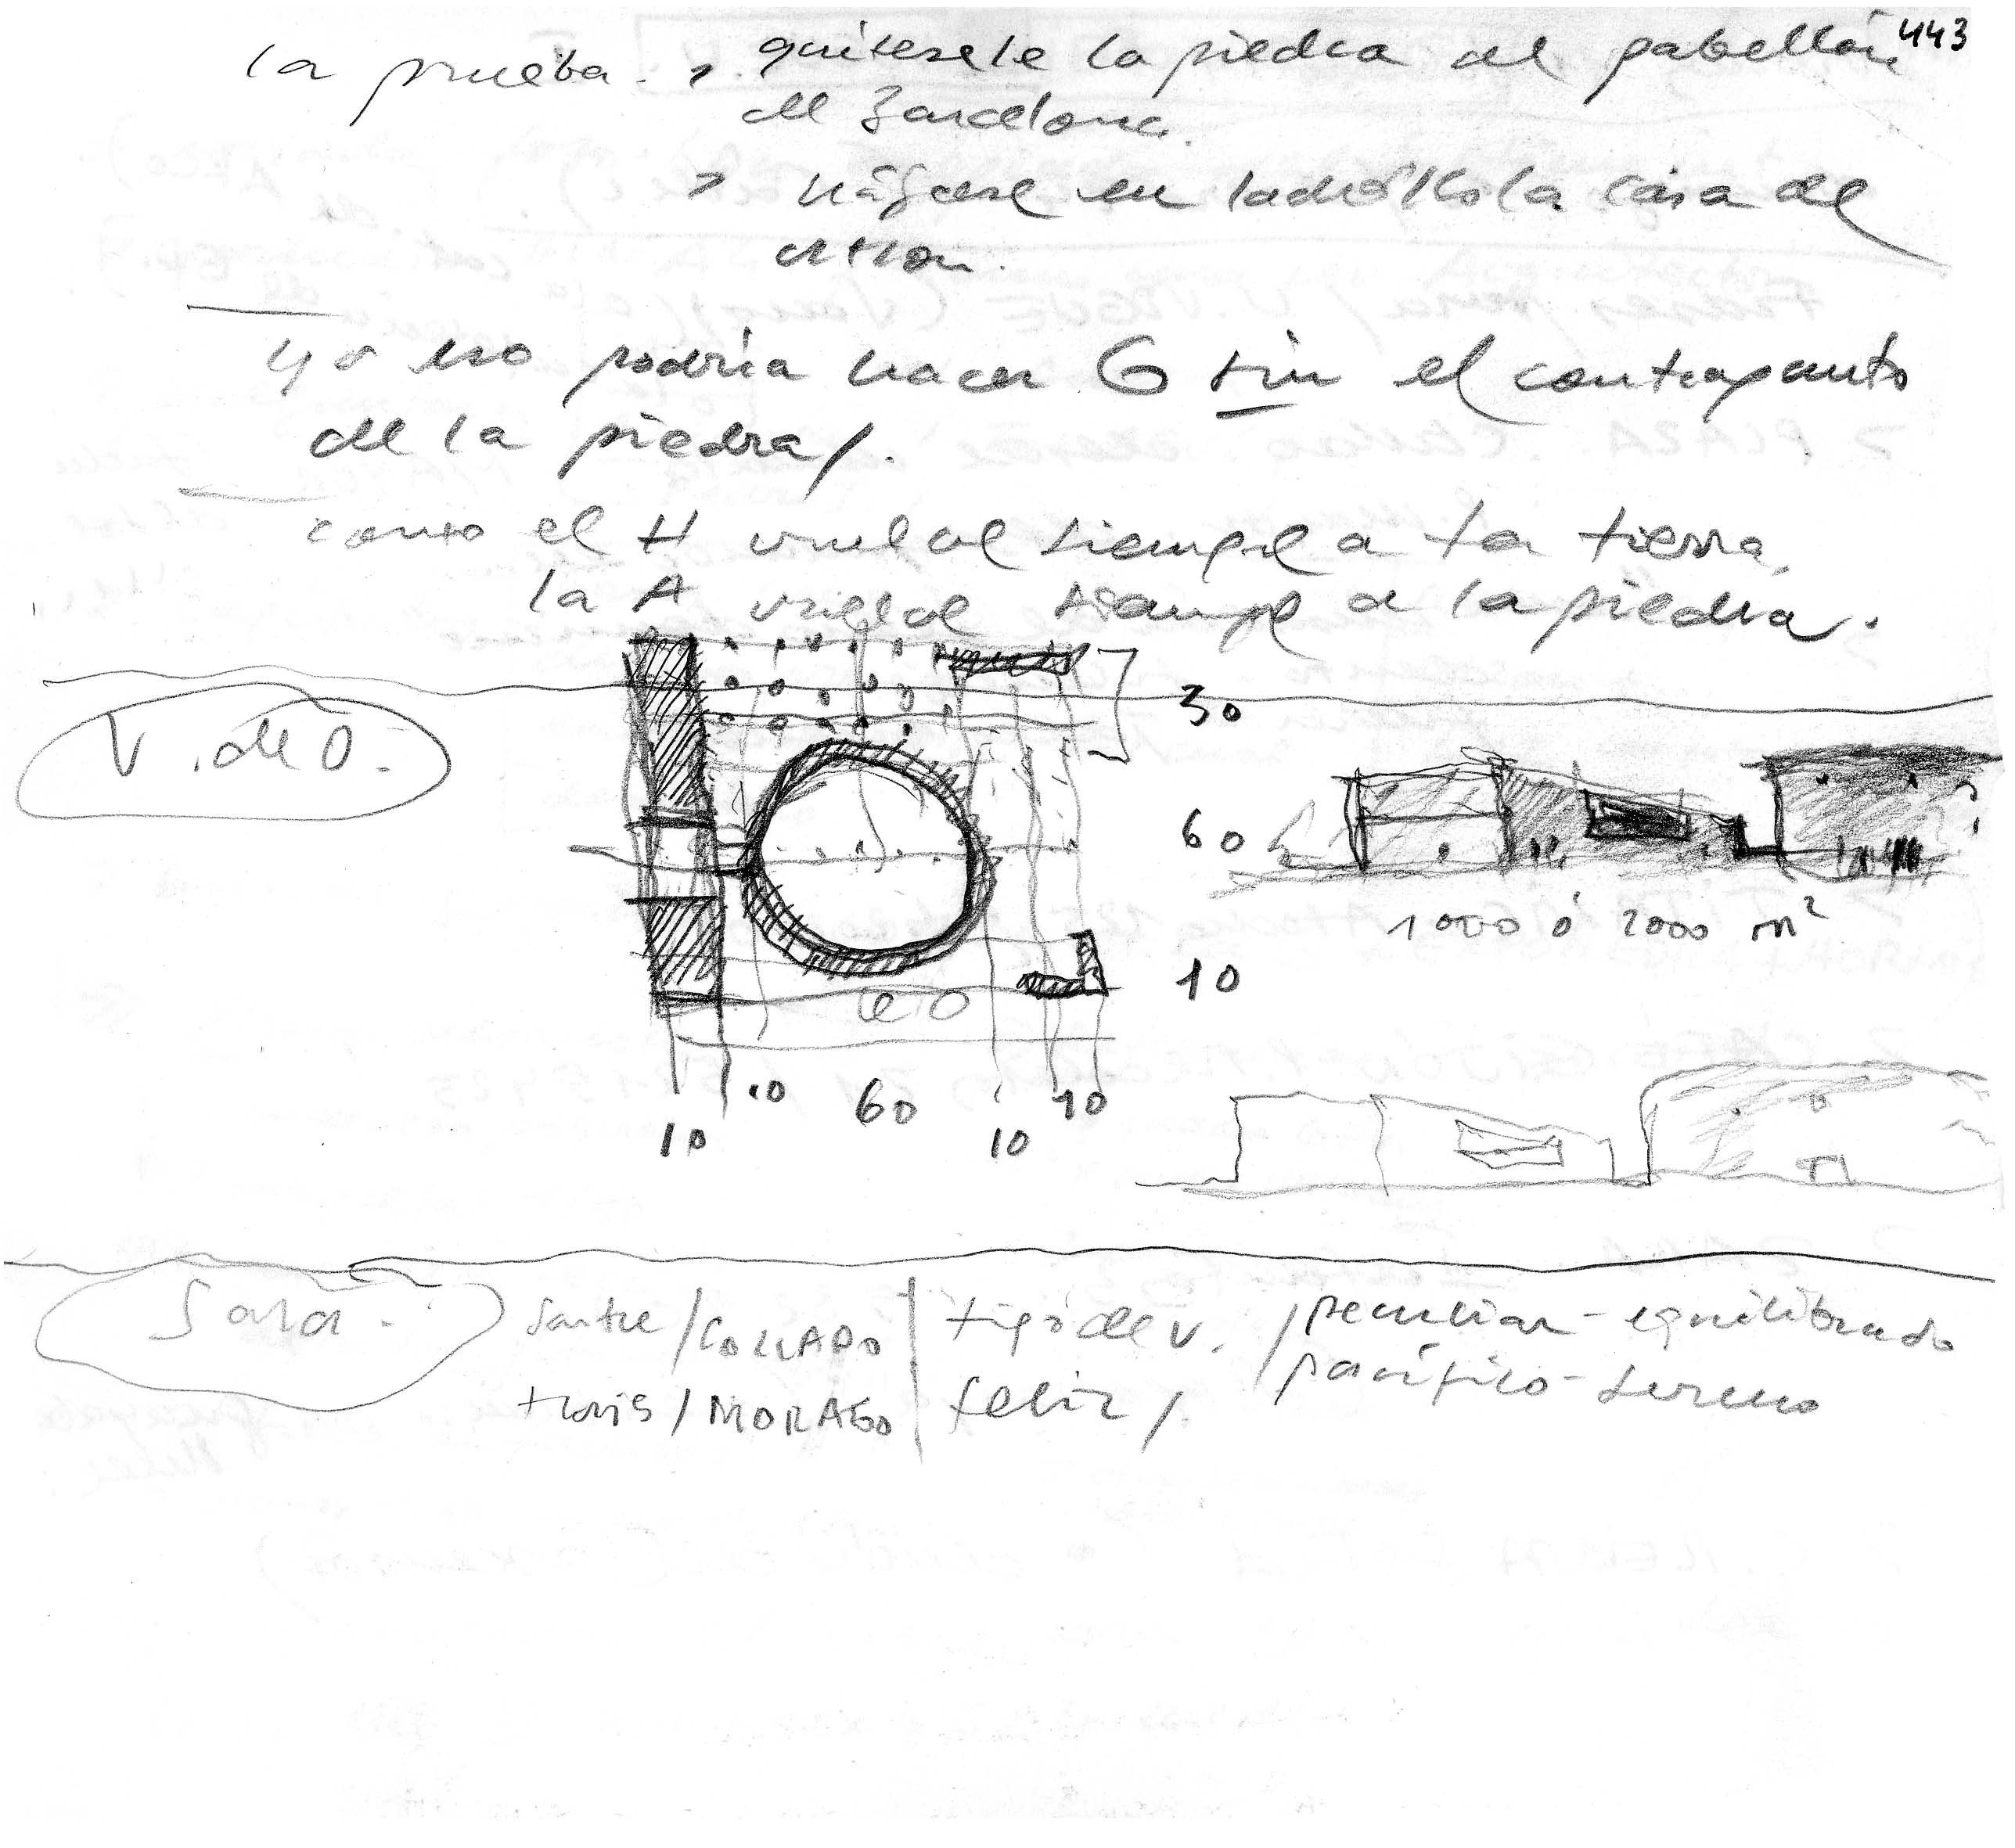 443
la prueba. > quítesele la piedra al pabellón
de Barcelona.
> hágase en ladrillo la casa del
yo no podría hacer G sin el contrapunto
de la piedra/.
como el H vuelve siempre a la tierra,
la A vuelve siempre a la piedra.
V. de O.
30
60
10
1000 ó 2000 m²
10 10 60 10 10
Sara.
Sartre / COLLADO | tipo de v. / peculiar - equilibrado
/ MORAGO | feliz / pacífico - sereno